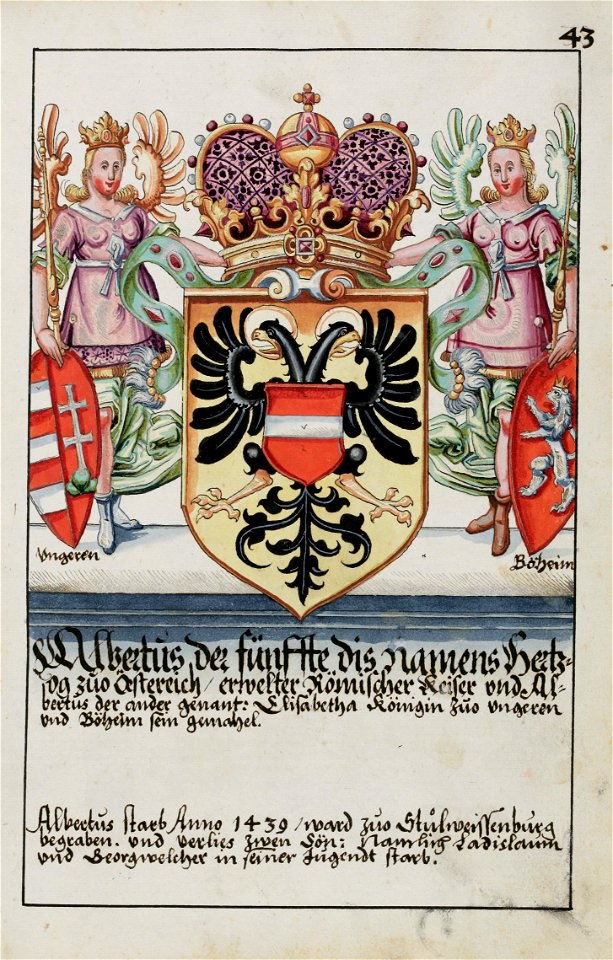 43
Ungeren
Böheim
Albertus der fünffte dis namens Hertz-
og zuo Östereich / erwelter Römischer Keiser und Al-
bertus der ander genant: Elisabetha Köingin zuo ungeren
und Böheim sein gemahel.
Albertus starb Anno 1439 / ward zuo Stulweissenburg
begraben. und verlies zwen Sön: Namlich Ladislaum
und Georg welcher in seiner Jugendt starb.